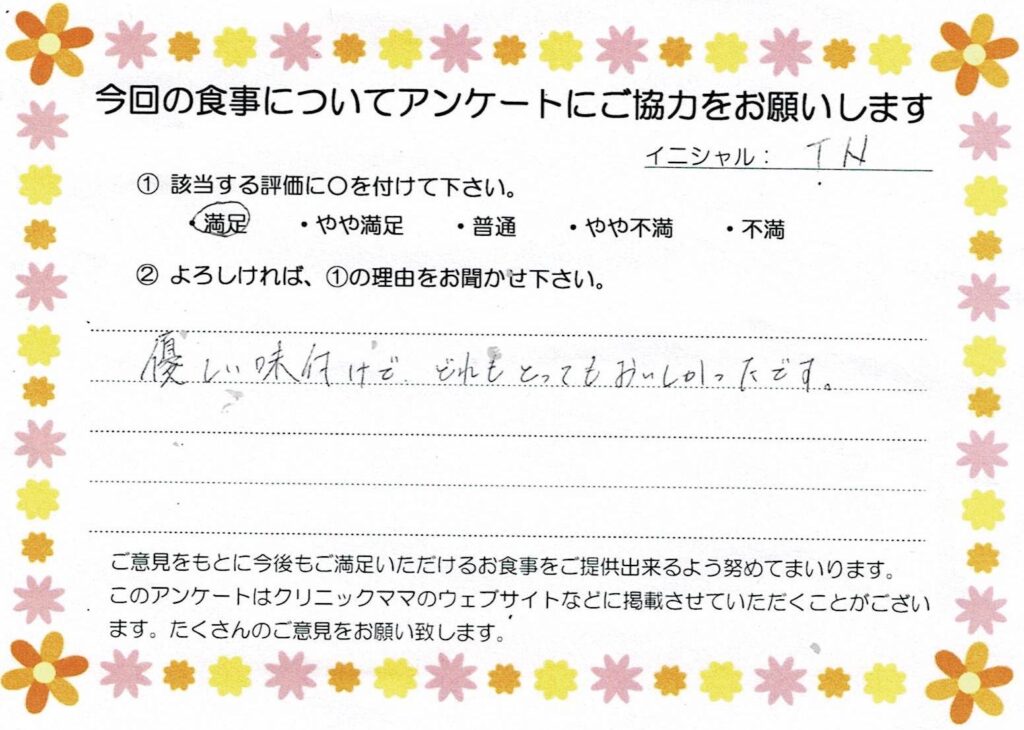 今回の食事についてアンケートにご協力をお願いします
イニシャル： T H
① 該当する評価に〇を付けて下さい。
・満足 ・やや満足 ・普通 ・やや不満 ・不満
② よろしければ、①の理由をお聞かせ下さい。
優しい味付けで、どれもとってもおいしかったです。
ご意見をもとに今後もご満足いただけるお食事をご提供出来るよう努めてまいります。
このアンケートはクリニックママのウェブサイトなどに掲載させていただくことがござい
ます。たくさんのご意見をお願い致します。